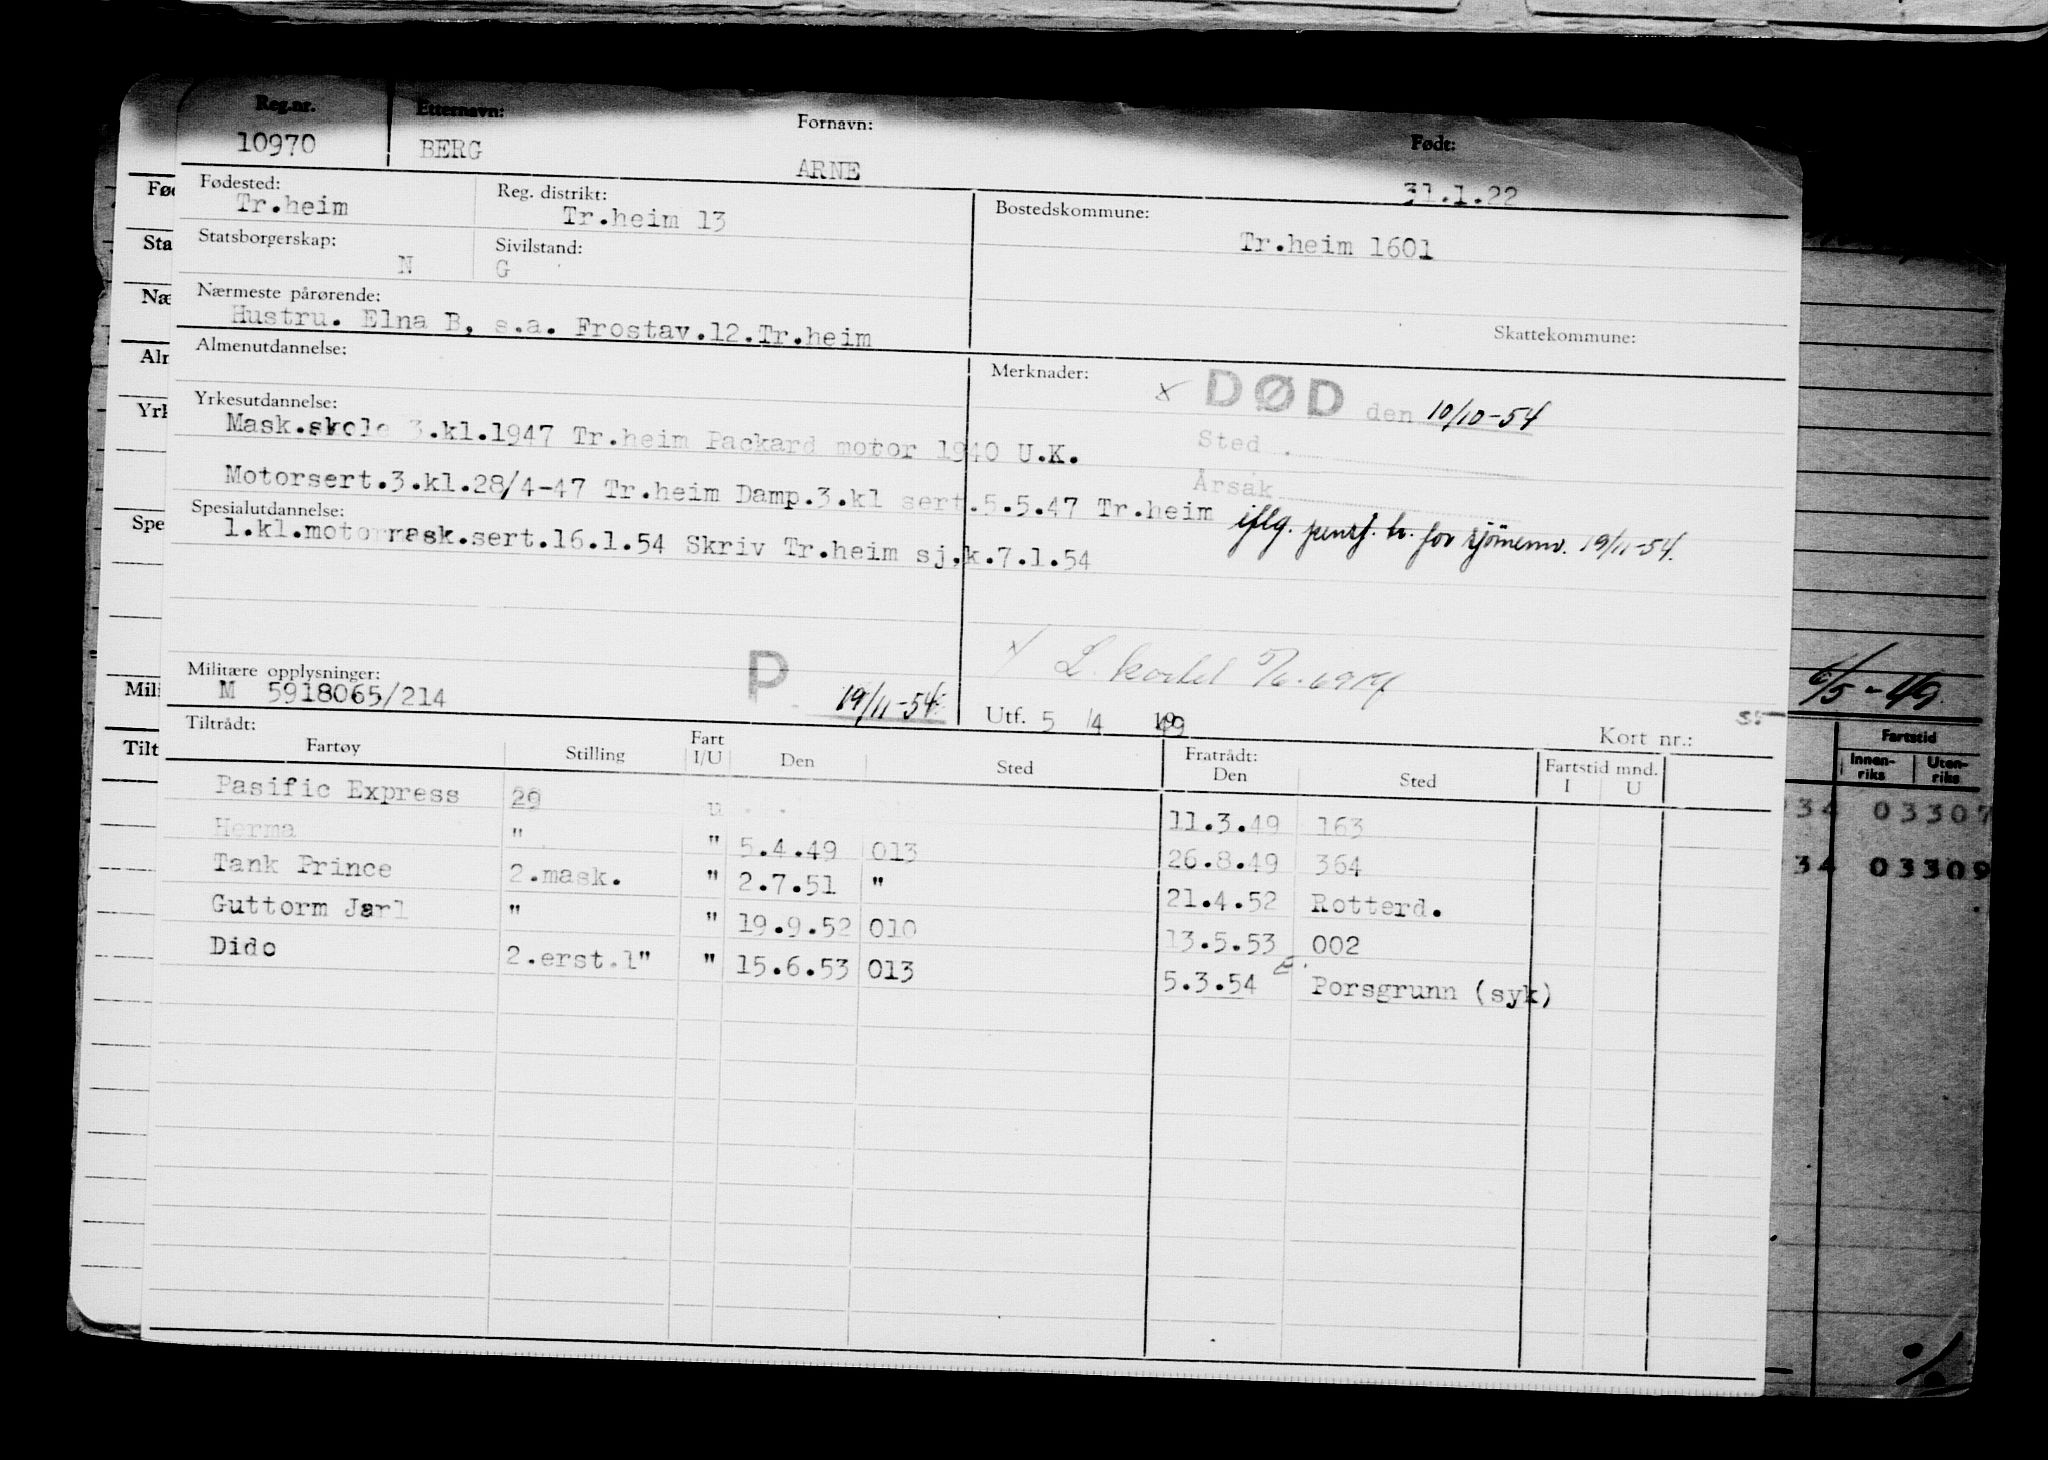 Reg.nr. Etternavn: Fornavn: Født:
10970 BERG ARNE 31.1.22
Fødested: Reg. distrikt: Bostedskommune:
Tr.heim Tr.heim 13 Tr.heim 1601
Statsborgerskap: Sivilstand:
N G
Nærmeste pårørende:
Hustru. Elna B, s.a. Frostav.12.Tr.heim
Skattekommune:
Almenutdannelse: Merknader:
x DØD den 10/10-54
Yrkesutdannelse:
Mask.skole 3.kl.1947 Tr.heim Packard motor 1940 U.K.
Sted
Motorsert.3.kl.28/4-47 Tr.heim Damp.3.kl sert.5.5.47 Tr.heim
Årsak
Spesialutdannelse:
1.kl.motormask.sert.16.1.54 Skriv Tr.heim sj.k.7.1.54
iflg. pensj. tr. for sjömenn. 19/11-54.
Militære opplysninger:
M 5918065/214 P 19/11-54
Utf. 5 /4 1949 Kort nr.:
Tiltrådt: Fratrådt:
Fartøy Stilling Fart I/U Den Sted Den Sted Fartstid mnd. I U
Pasific Express 29 u 11.3.49 163
Herma " " 5.4.49 013 26.8.49 364
Tank Prince 2.mask. " 2.7.51 " 21.4.52 Rotterd.
Guttorm Jarl " " 19.9.52 010 13.5.53 002
Dido 2.erst.1" " 15.6.53 013 5.3.54 Porsgrunn (syk)
Fød
Sta
Næ
Alm
Yrk
Spe
Mili
Tilt
6/5-49
Fartstid
Innen-riks Uten-riks
34 03307
34 03309